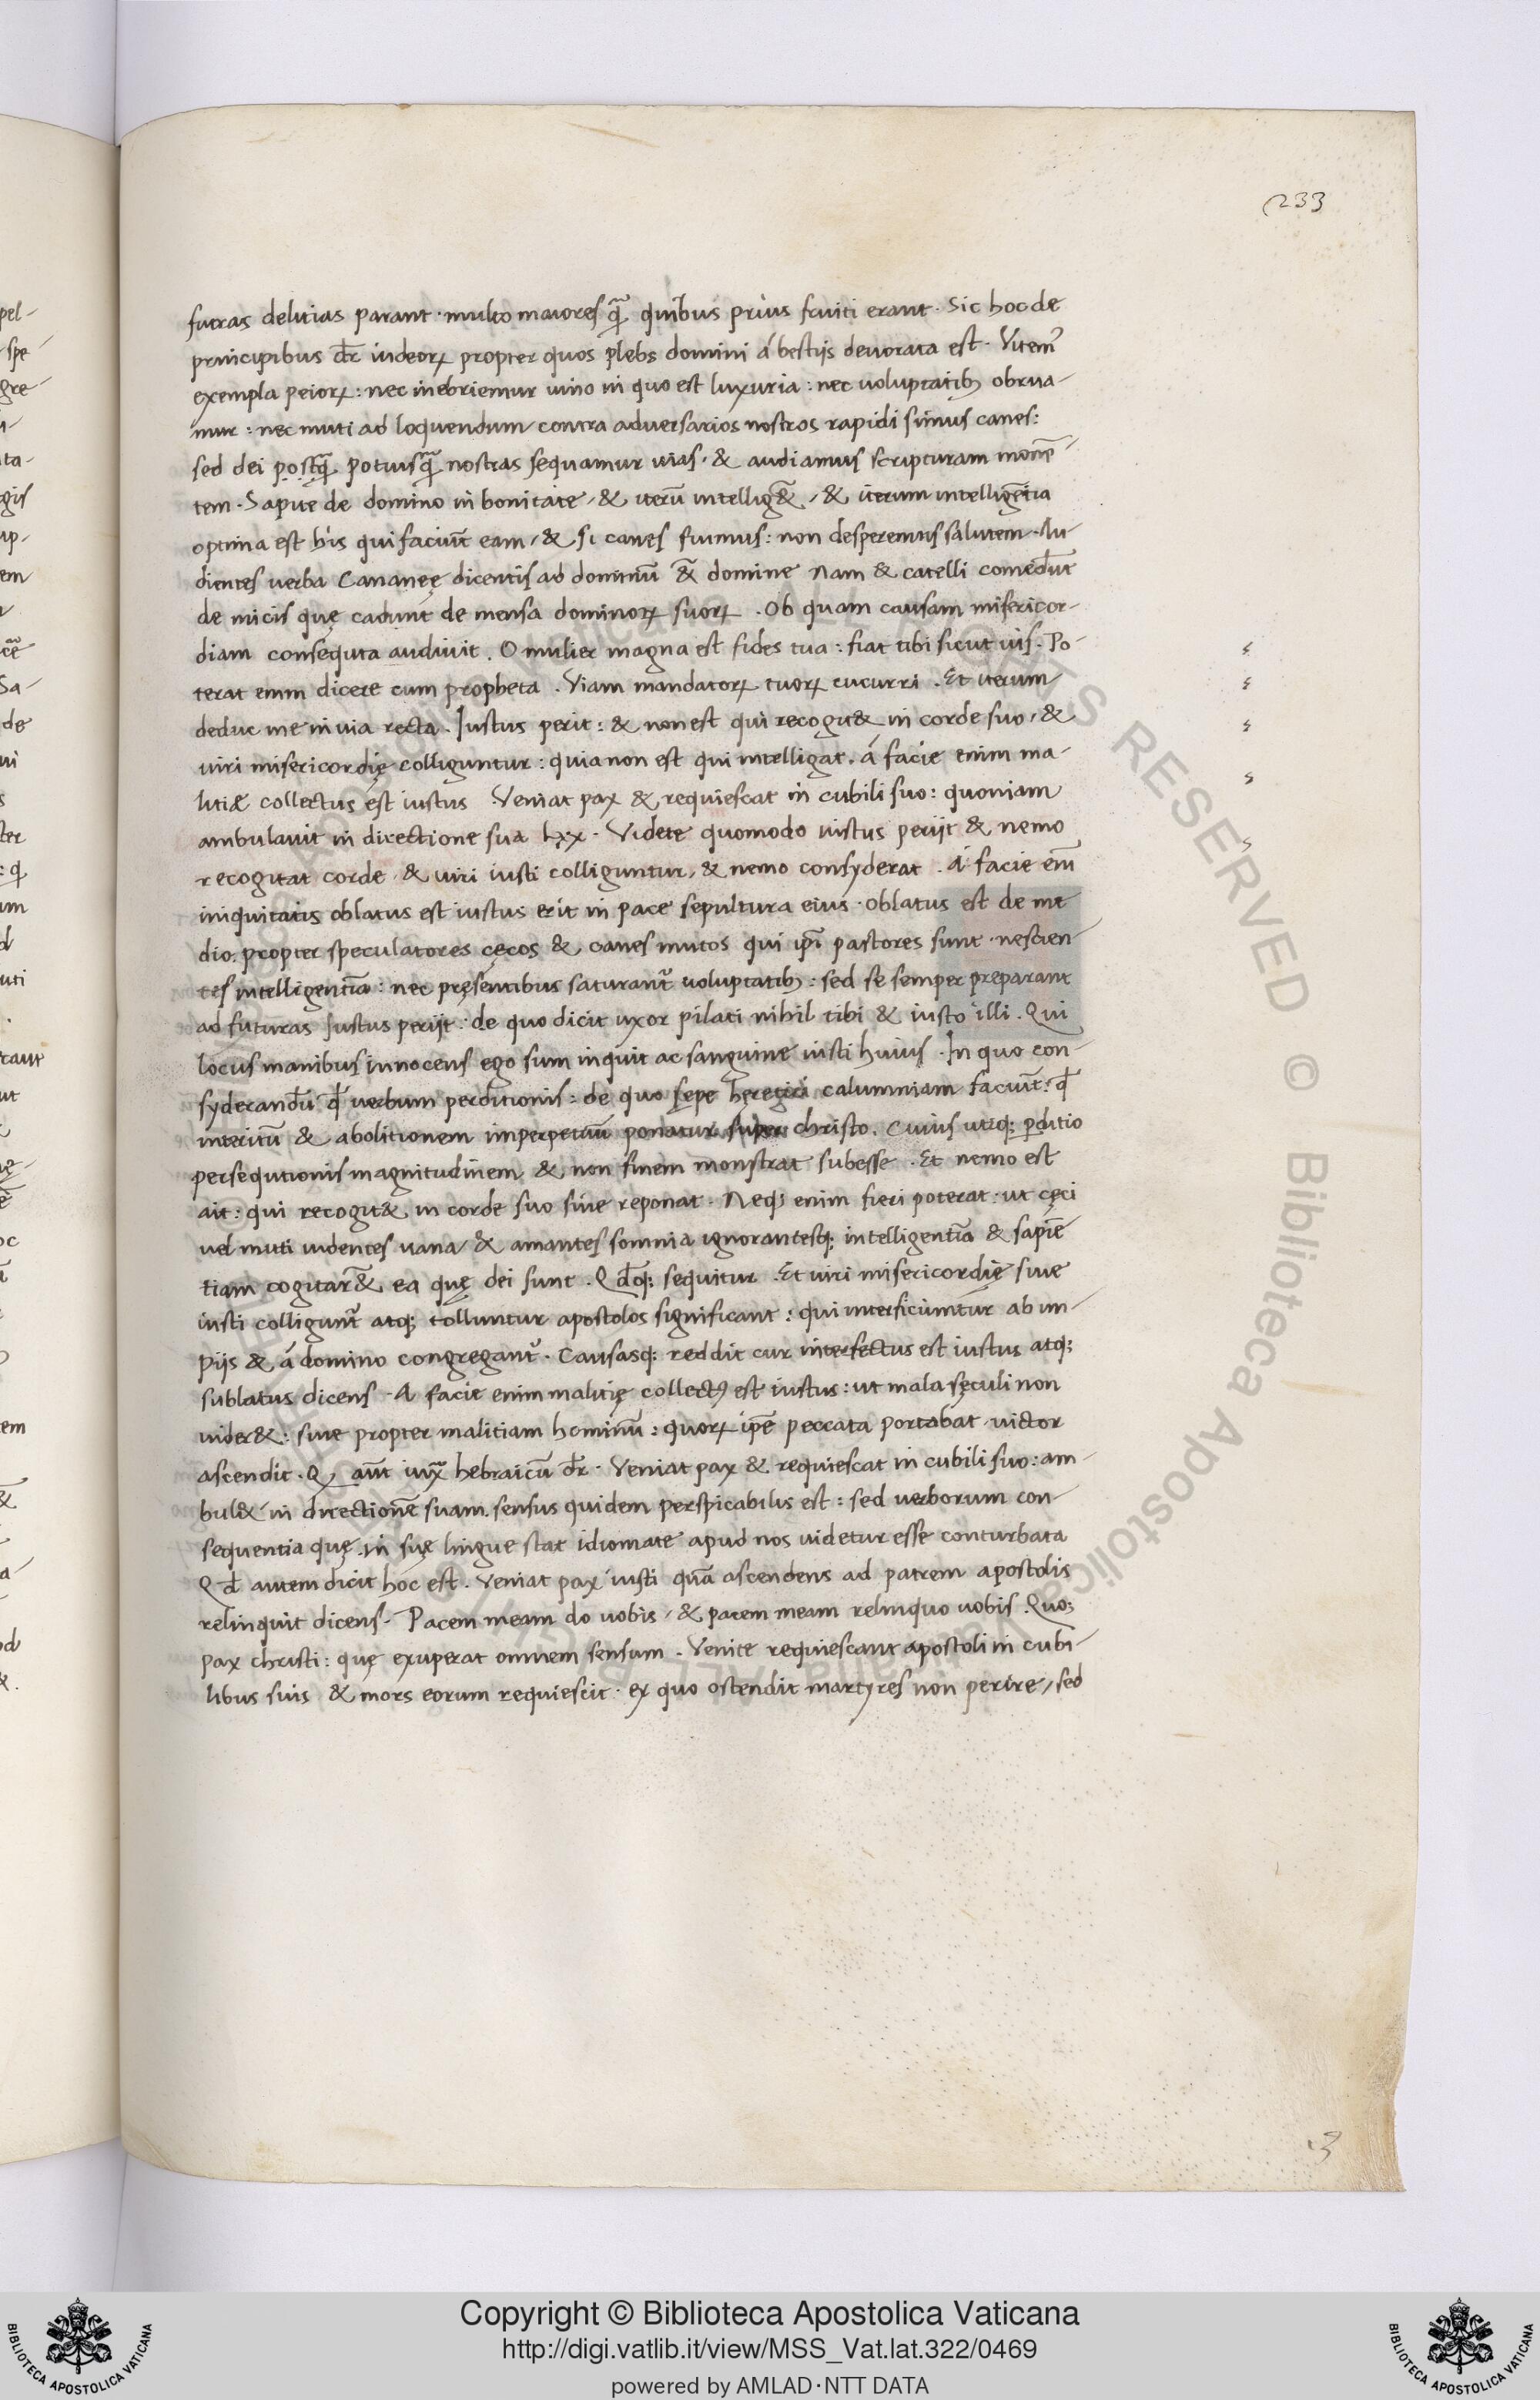 233
futras delitias parant · multo maiores q̃ quibus prius fruiti erant · Sic hoc de
principibus dr̄ iudeoꝝ propter quos plebs domini á bestijs deuorata est · Vitem᷒
exempla peioꝝ : nec inebriemur uino in quo est luxuria : nec uoluptatibꝫ obrua-
mur : nec muti ad loquendum contra aduersarios nostros rapidi simus canes :
sed dei postq̃ potuisq̃ nostras sequamur uias · & audiamus scripturam monē-
tem · Sapite de domino in bonitate / & iterū intellig&̄ / & iterum intelligētia
optima est his qui faciūt eam / & si canes fuimus : non desperemus salutem · Au-
dientes uerba Cananeę dicentis ad dominū &̄ domine Nam & catelli comedūt
de micis quę cadunt de mensa dominoꝝ suoꝝ . Ob quam causam misericor-
diam consequta audiuit . O mulier magna est fides tua : fiat tibi sicut uis . Po-
terat enim dicere cum propheta . Viam mandatoꝝ tuoꝝ cucurri . Et iterum
deduc me in uia recta . Iustus perit : & non est qui recogit& in corde suo / &
uiri misericordię colliguntur : quia non est qui intelligat . á facie enim ma-
liti& collectus est iustus Veniat pax & requiescat in cubili suo : quoniam
ambulauit in directione sua lxx · Videte quomodo iustus perijt & nemo
recogitat corde · & uiri iusti colliguntur / & nemo consyderat . A facie em̄
iniquitatis oblatus est iustus erit in pace sepultura eius · oblatus est de me
dio . propter speculatores cęcos & canes mutos qui ip̄i pastores sunt · nescien-
tes intelligentiā : nec pręsentibus saturant᷒ uoluptatibꝫ : sed se semper preparant
ad futuras Iustus perijt : de quo dicit uxor pilati nihil tibi & iusto illi . Qui
locus manibus innocens ego sum inquit ac sanguine iusti huius . In quo con-
syderandū qd̄ uerbum perditionis : de quo sępe hęretici calumniam faciūt : qd̄
interitū & abolitionem imperpetuū ponatur super christo . Cuius utiqꝫ ꝑditio
persequtionis magnitudinem & non finem monstrat subesse . Et nemo est
ait : qui recogit& in corde suo siue reponat . Neqꝫ enim fieri poterat : ut cęci
uel muti uidentes uana / & amantes somnia ignorantesqꝫ intelligentiā & sapiē
tiam cogitar&̄ ea quę dei sunt . Qd̄qꝫ sequitur . Et uiri misericordię siue
iusti colligunt᷒ atqꝫ tolluntur apostolos significant : qui interficiuntur ab im-
pijs & á domino congregant᷒ . Causasqꝫ reddit cur interfectus est iustus atqꝫ
sublatus dicens · A facie enim malitię collectꝰ est iustus : ut mala sęculi non
uider& : siue propter malitiam hominū : quoꝝ ip̄e peccata portabat · uictor
ascendit . Qꝫ aūt iuxͣ hebraicū dr̄ · Veniat pax & requiescat in cubili suo : am-
bul& in directionē suam . sensus quidem perspicabilis est : sed uerborum con-
sequentia quę in suę lingue stat idiomate apud nos uidetur esse conturbata
Qd̄ autem dicit hoc est . Veniat pax iusti quā ascendens ad patrem apostolis
relinquit dicens . Pacem meam do uobis / & pacem meam relinquo uobis . Quoꝫ
pax christi : quę exuperat omnem sensum . Venite requiescant apostoli in cubi-
libus suis & mors eorum requiescit . ex quo ostendit martyres non perire / sed
Copyright © Biblioteca Apostolica Vaticana
http://digi.vatlib.it/view/MSS_Vat.lat.322/0469
powered by AMLAD·NTT DATA
BIBLIOTECA APOSTOLICA VATICANA
BIBLIOTECA APOSTOLICA VATICANA